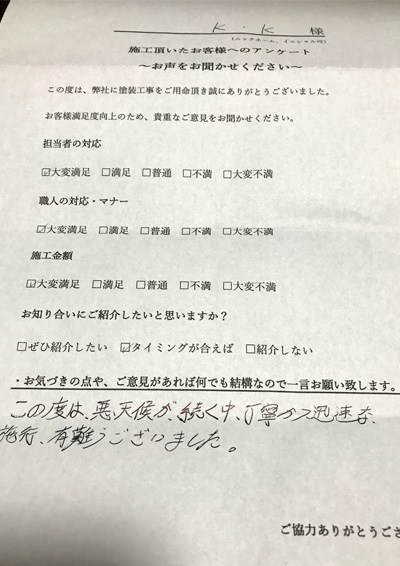 K・K 様
(ニックネーム、イニシャル可)
施工頂いたお客様へのアンケート
～お声をお聞かせください～
この度は、弊社に塗装工事をご用命頂き誠にありがとうございました。
お客様満足度向上のため、貴重なご意見をお聞かせください。
担当者の対応
☑大変満足 □満足 □普通 □不満 □大変不満
職人の対応・マナー
☑大変満足 □満足 □普通 □不満 □大変不満
施工金額
☑大変満足 □満足 □普通 □不満 □大変不満
お知り合いにご紹介したいと思いますか？
□ぜひ紹介したい ☑タイミングが合えば □紹介しない
・お気づきの点や、ご意見があれば何でも結構なので一言お願い致します。
この度は、悪天候が、続く中、丁寧かつ迅速な
施行、有難うございました。
ご協力ありがとうござ